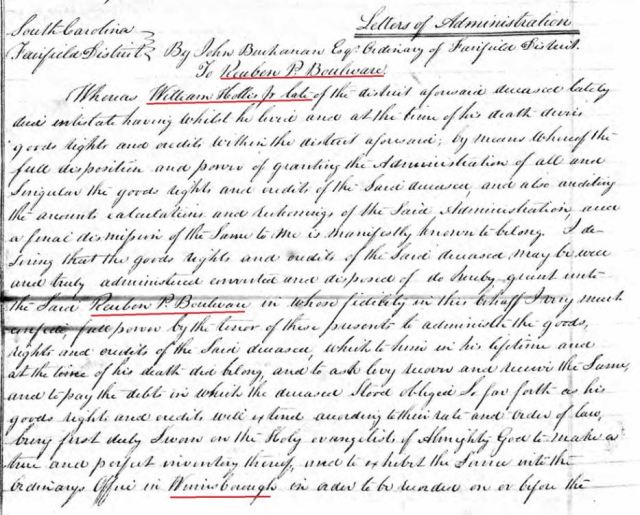 South Carolina
Letters of Administration
Fairfield District
By John Buchanan Esqr. Ordinary of Fairfield District.
To Reuben P. Boulware.
Whereas William Hollis Jr late of the district aforesaid deceased lately
died intestate having whilst he lived and at the time of his death divers
goods rights and credits within the district aforesaid; by means whereof the
full disposition and power of granting the Administration of all and
Singular the goods Rights and credits of the Said deceased, and also auditing
the amounts calculations and reckonings of the Said Administration, and
a final dismission of the Same to me is manifestly known to belong. I de-
Siring that the goods rights and credits of the Said deceased may be well
and truly administered converted and disposed of do hereby grant unto
the Said Reuben P. Boulware in whose fidelity in this behalf I very much
confide, full power by the tenor of these presents to administer the goods,
rights and credits of the Said deceased, which to him in his lifetime and
at the time of his death did belong, and to ask levy recover and receive the Same,
and to pay the debts in which the deceased Stood obliged So far forth as his
goods rights and credits will extend according to their rate and order of law,
being first duly Sworn on the Holy evangelists of Almighty God to make a
true and perfect inventory thereof, and to exhibit the Same into the
Ordinarys Office in Winnsborough in order to be recorded on or before the